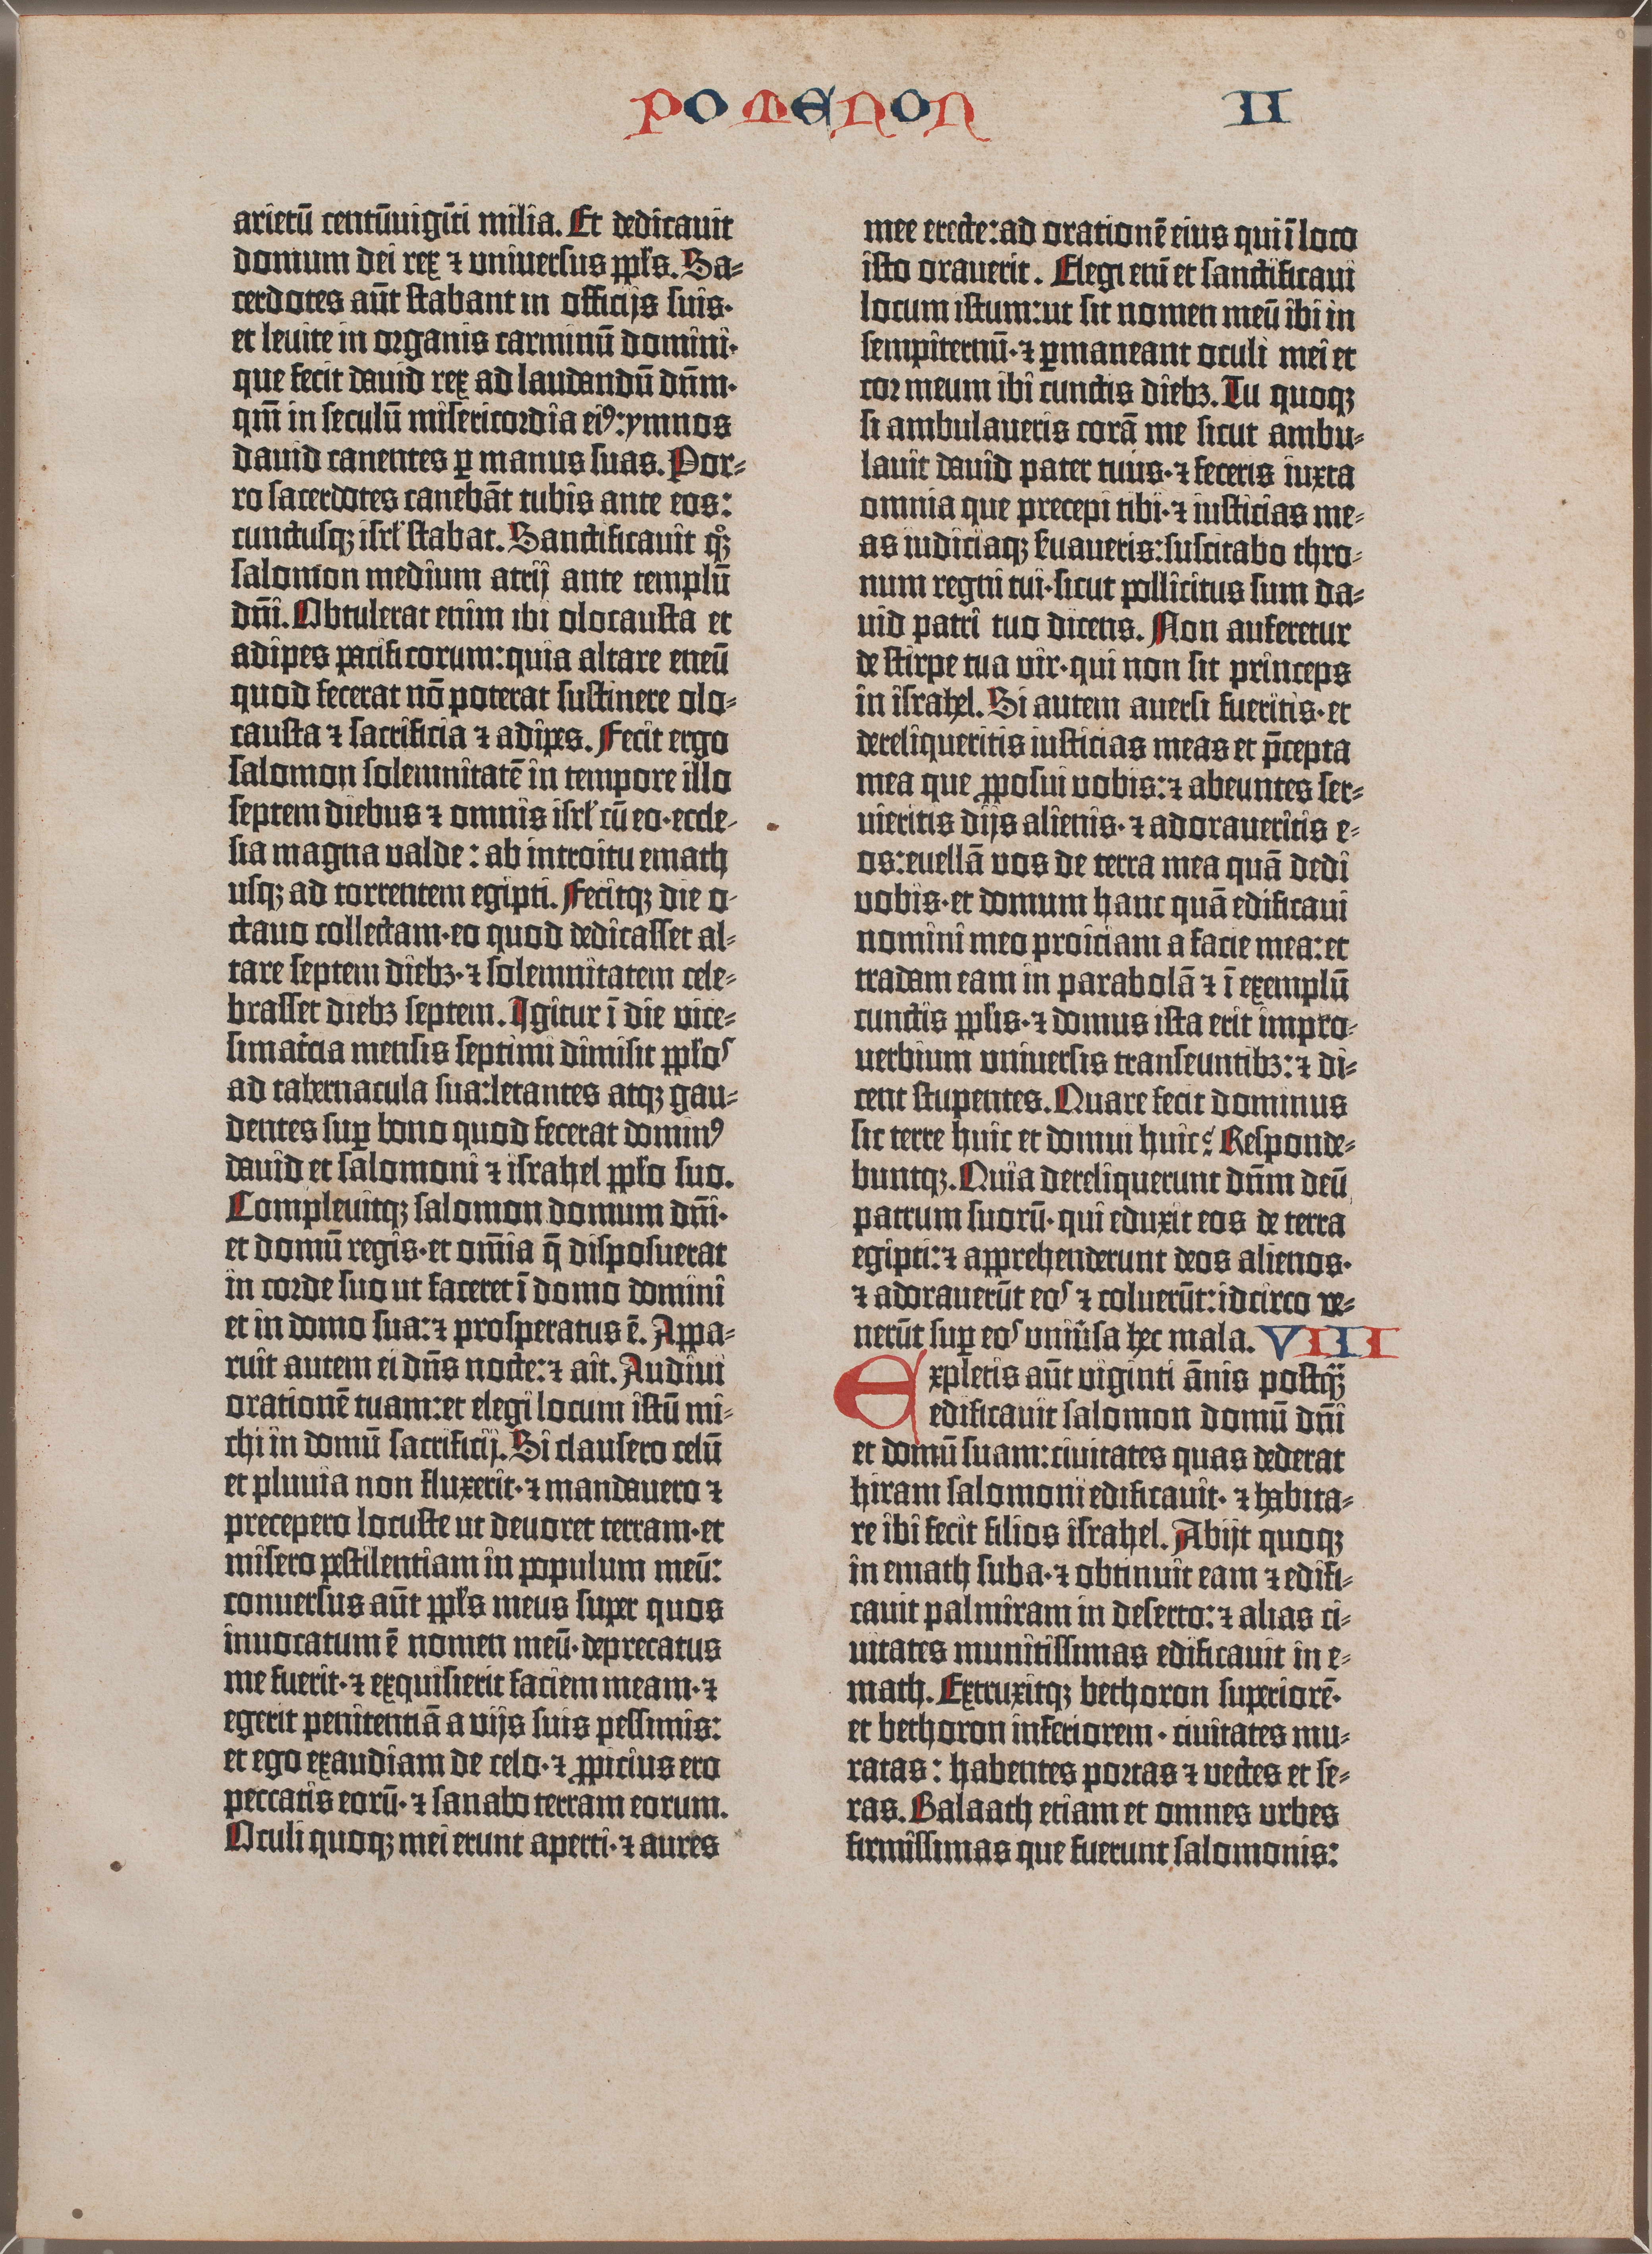 POMENON II
arietū centūuigīti milia. Et dedicauit
domum dei rex ⁊ vniuersus ppl̄s. Sa-
cerdotes aūt stabant in officijs suis·
et leuite in organis carminū domini·
que fecit dauid rex ad laudandū dn̄m·
qm̄ in seculū misericordia eiꝰ: ymnos
dauid canentes ꝑ manus suas. Por-
ro sacerdotes canebāt tubis ante eos:
cunctusqꝫ isrl̄ stabat. Sanctificauit qͦꝫ
salomon medium atrij ante templū
dn̄i. Obtulerat enim ibi olocausta et
adipes pacificorum: quia altare eneū
quod fecerat nō poterat sustinere olo-
causta ⁊ sacrificia ⁊ adipes. Fecit ergo
salomon solemnitatē in tempore illo
septem diebus ⁊ omnis isrl̄ cū eo· eccle-
sia magna valde: ab introitu emath
usqꝫ ad torrentem egipti. Fecitqꝫ die o-
ctauo collectam· eo quod dedicasset al-
tare septem diebꝫ· ⁊ solemnitatem cele-
brasset diebꝫ septem. Igitur ī die vice-
simatc̄ia mensis septimi dimisit ppl̄os
ad tabernacula sua: letantes atqꝫ gau-
dentes suꝑ bono quod fecerat dominꝰ
dauid et salomoni ⁊ israhel ppl̄o suo.
Compleuitqꝫ salomon domum dn̄i·
et domū regis· et om̄ia q̄ disposuerat
in corde suo ut faceret ī domo domini
et in domo sua: ⁊ prosperatus ē. Appa-
ruit autem ei dn̄s nocte: ⁊ ait. Audiui
orationē tuam: et elegi locum istū mi-
chi in domū sacrificij. Si clausero celū
et pluuia non fluxerit· ⁊ mandauero ⁊
precepero locuste ut deuoret terram· et
misero pestilentiam in populum meū:
conuersus aūt ppl̄s meus super quos
inuocatum ē nomen meū· deprecatus
me fuerit· ⁊ exquisierit faciem meam· ⁊
egerit penitentiā a vijs suis pessimis:
et ego exaudiam de celo· ⁊ ꝓpicius ero
peccatis eorū· ⁊ sanabo terram eorum.
Oculi quoqꝫ mei erunt aperti· ⁊ aures
mee erecte: ad orationē eius qui ī loco
isto orauerit. Elegi eni̅ et sanctificaui
locum istum: ut sit nomen meū ibi in
sempiternū· ⁊ ꝑmaneant oculi mei et
cor meum ibi cunctis diebꝫ. Tu quoqꝫ
si ambulaueris corā me sicut ambu-
lauit dauid pater tuus· ⁊ feceris iuxta
omnia que precepi tibi· ⁊ iusticias me-
as iudiciaqꝫ s̄uaueris: suscitabo thro-
num regni tui· sicut pollicitus sum da-
uid patri tuo dicens. Non auferetur
de stirpe tua vir· qui non sit princeps
in israhel. Si autem auersi fueritis· et
dereliqueritis iusticias meas et p̄cepta
mea que ꝓposui vobis: ⁊ abeuntes ser-
uieritis dijs alienis· ⁊ adoraueritis e-
os: euellā vos de terra mea quā dedi
vobis· et domum hanc quā edificaui
nomini meo proiciam a facie mea: et
tradam eam in parabolā ⁊ ī exemplū
cunctis ppl̄is· ⁊ domus ista erit impro-
uerbium vniuersis transeuntibꝫ: ⁊ di-
cent stupentes. Quare fecit dominus
sic terre huic et domui huic? Responde-
buntqꝫ. Quia dereliquerunt dn̄m deū
patrum suorū· qui eduxit eos de terra
egipti: ⁊ apprehenderunt deos alienos·
⁊ adorauerūt eos ⁊ coluerūt: idcirco ve-
nerūt suꝑ eos vniū̄sa hec mala. VIII
Expletis aūt viginti ānis postqꝫ̄
edificauit salomon domū dn̄i
et domū suam: ciuitates quas dederat
hiram salomoni edificauit· ⁊ habita-
re ibi fecit filios israhel. Abijt quoqꝫ
in emath suba· ⁊ obtinuit eam ⁊ edifi-
cauit palmiram in deserto: ⁊ alias ci-
uitates munitissimas edificauit in e-
math. Extruxitqꝫ bethoron superiorē·
et bethoron inferiorem· ciuitates mu-
ratas: habentes portas ⁊ vectes et se-
ras. Balaath etiam et omnes vrbes
firmissimas que fuerunt salomonis: